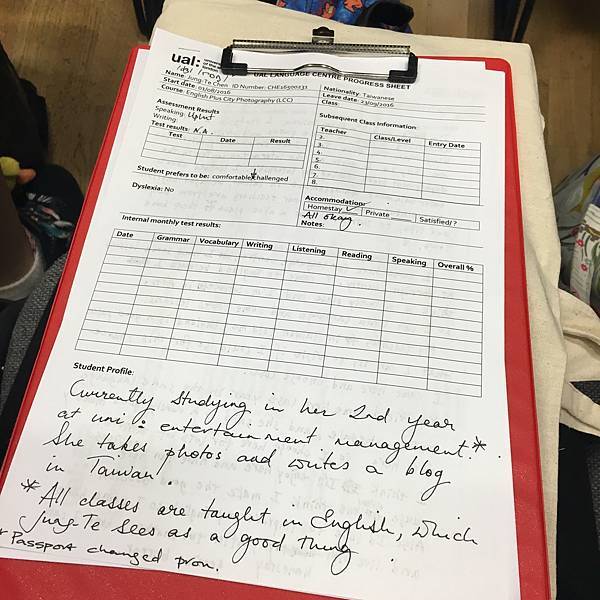 ual:
UAL LANGUAGE CENTRE PROGRESS SHEET
Name: Jung-Te Chen ID Number: CHE16500231
Start date: 01/08/2016
Course: English Plus City Photography (LCC)
Nationality: Taiwanese
Leave date: 23/09/2016
Class:
Assessment Results
Speaking: UpInt
Writing:
Test results: N.A.
Test Date Result
Student prefers to be: comfortable challenged
Dyslexia: No
Subsequent Class Information:
Teacher Class/Level Entry Date
2.
3.
4.
5.
6.
7.
8.
Accommodation:
Homestay ✓ Private Satisfied/?
All okay.
Notes:
Internal monthly test results:
Date Grammar Vocabulary Writing Listening Reading Speaking Overall %
Student Profile:
Currently studying in her 2nd year
at uni: entertainment management*.
She takes photos and writes a blog
in Taiwan!
*All classes are taught in English, which
Jung-Te sees as a good thing.
* Passport changed pron.